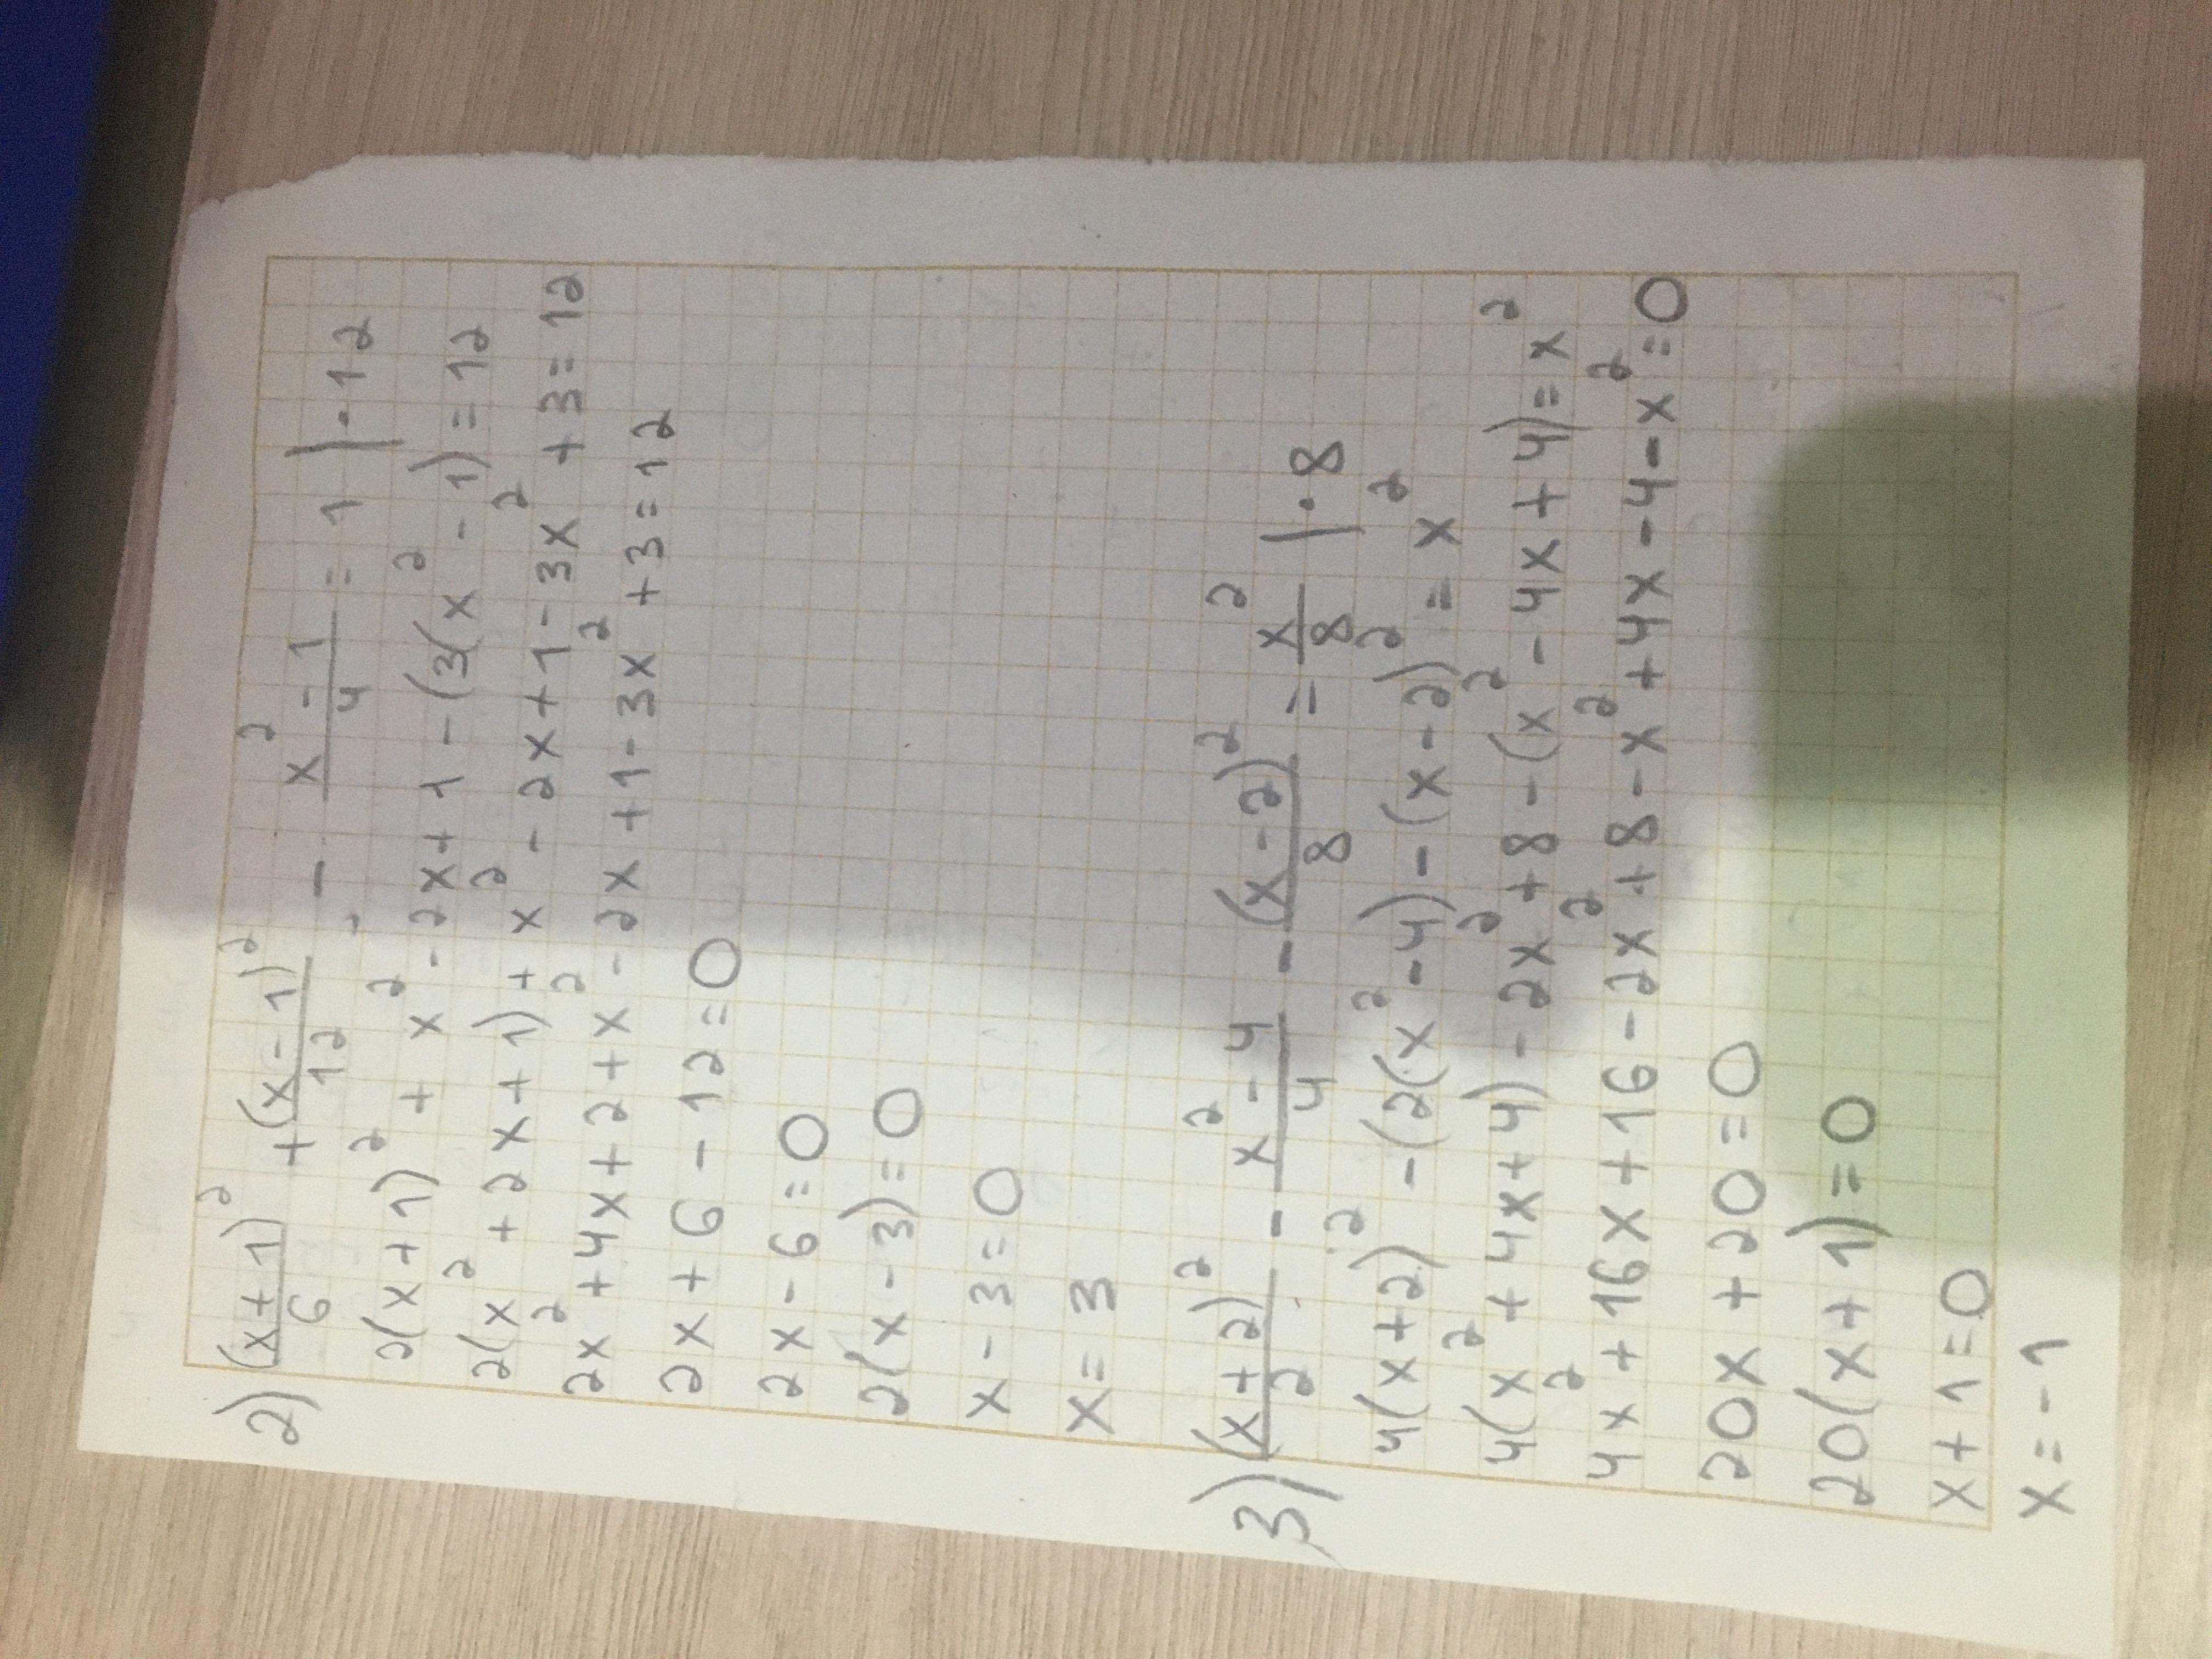 2) (x+1)²/6 + (x-1)²/12 - x²-1/4 = 1 | · 12
2(x+1)² + x² - 2x + 1 - (3(x² - 1) = 12
2(x² + 2x + 1) + x² - 2x + 1 - 3x² + 3 = 12
2x² + 4x + 2 + x² - 2x + 1 - 3x² + 3 = 12
2x + 6 - 12 = 0
2x - 6 = 0
2(x - 3) = 0
x - 3 = 0
x = 3
3) (x+2)²/2 - x²-4/4 - (x-2)²/8 = x²/8 | · 8
4(x+2)² - (2(x²-4) - (x-2)² = x²
4(x² + 4x + 4) - 2x² + 8 - (x² - 4x + 4) = x²
4x² + 16x + 16 - 2x² + 8 - x² + 4x - 4 - x² = 0
20x + 20 = 0
20(x + 1) = 0
x + 1 = 0
x = -1